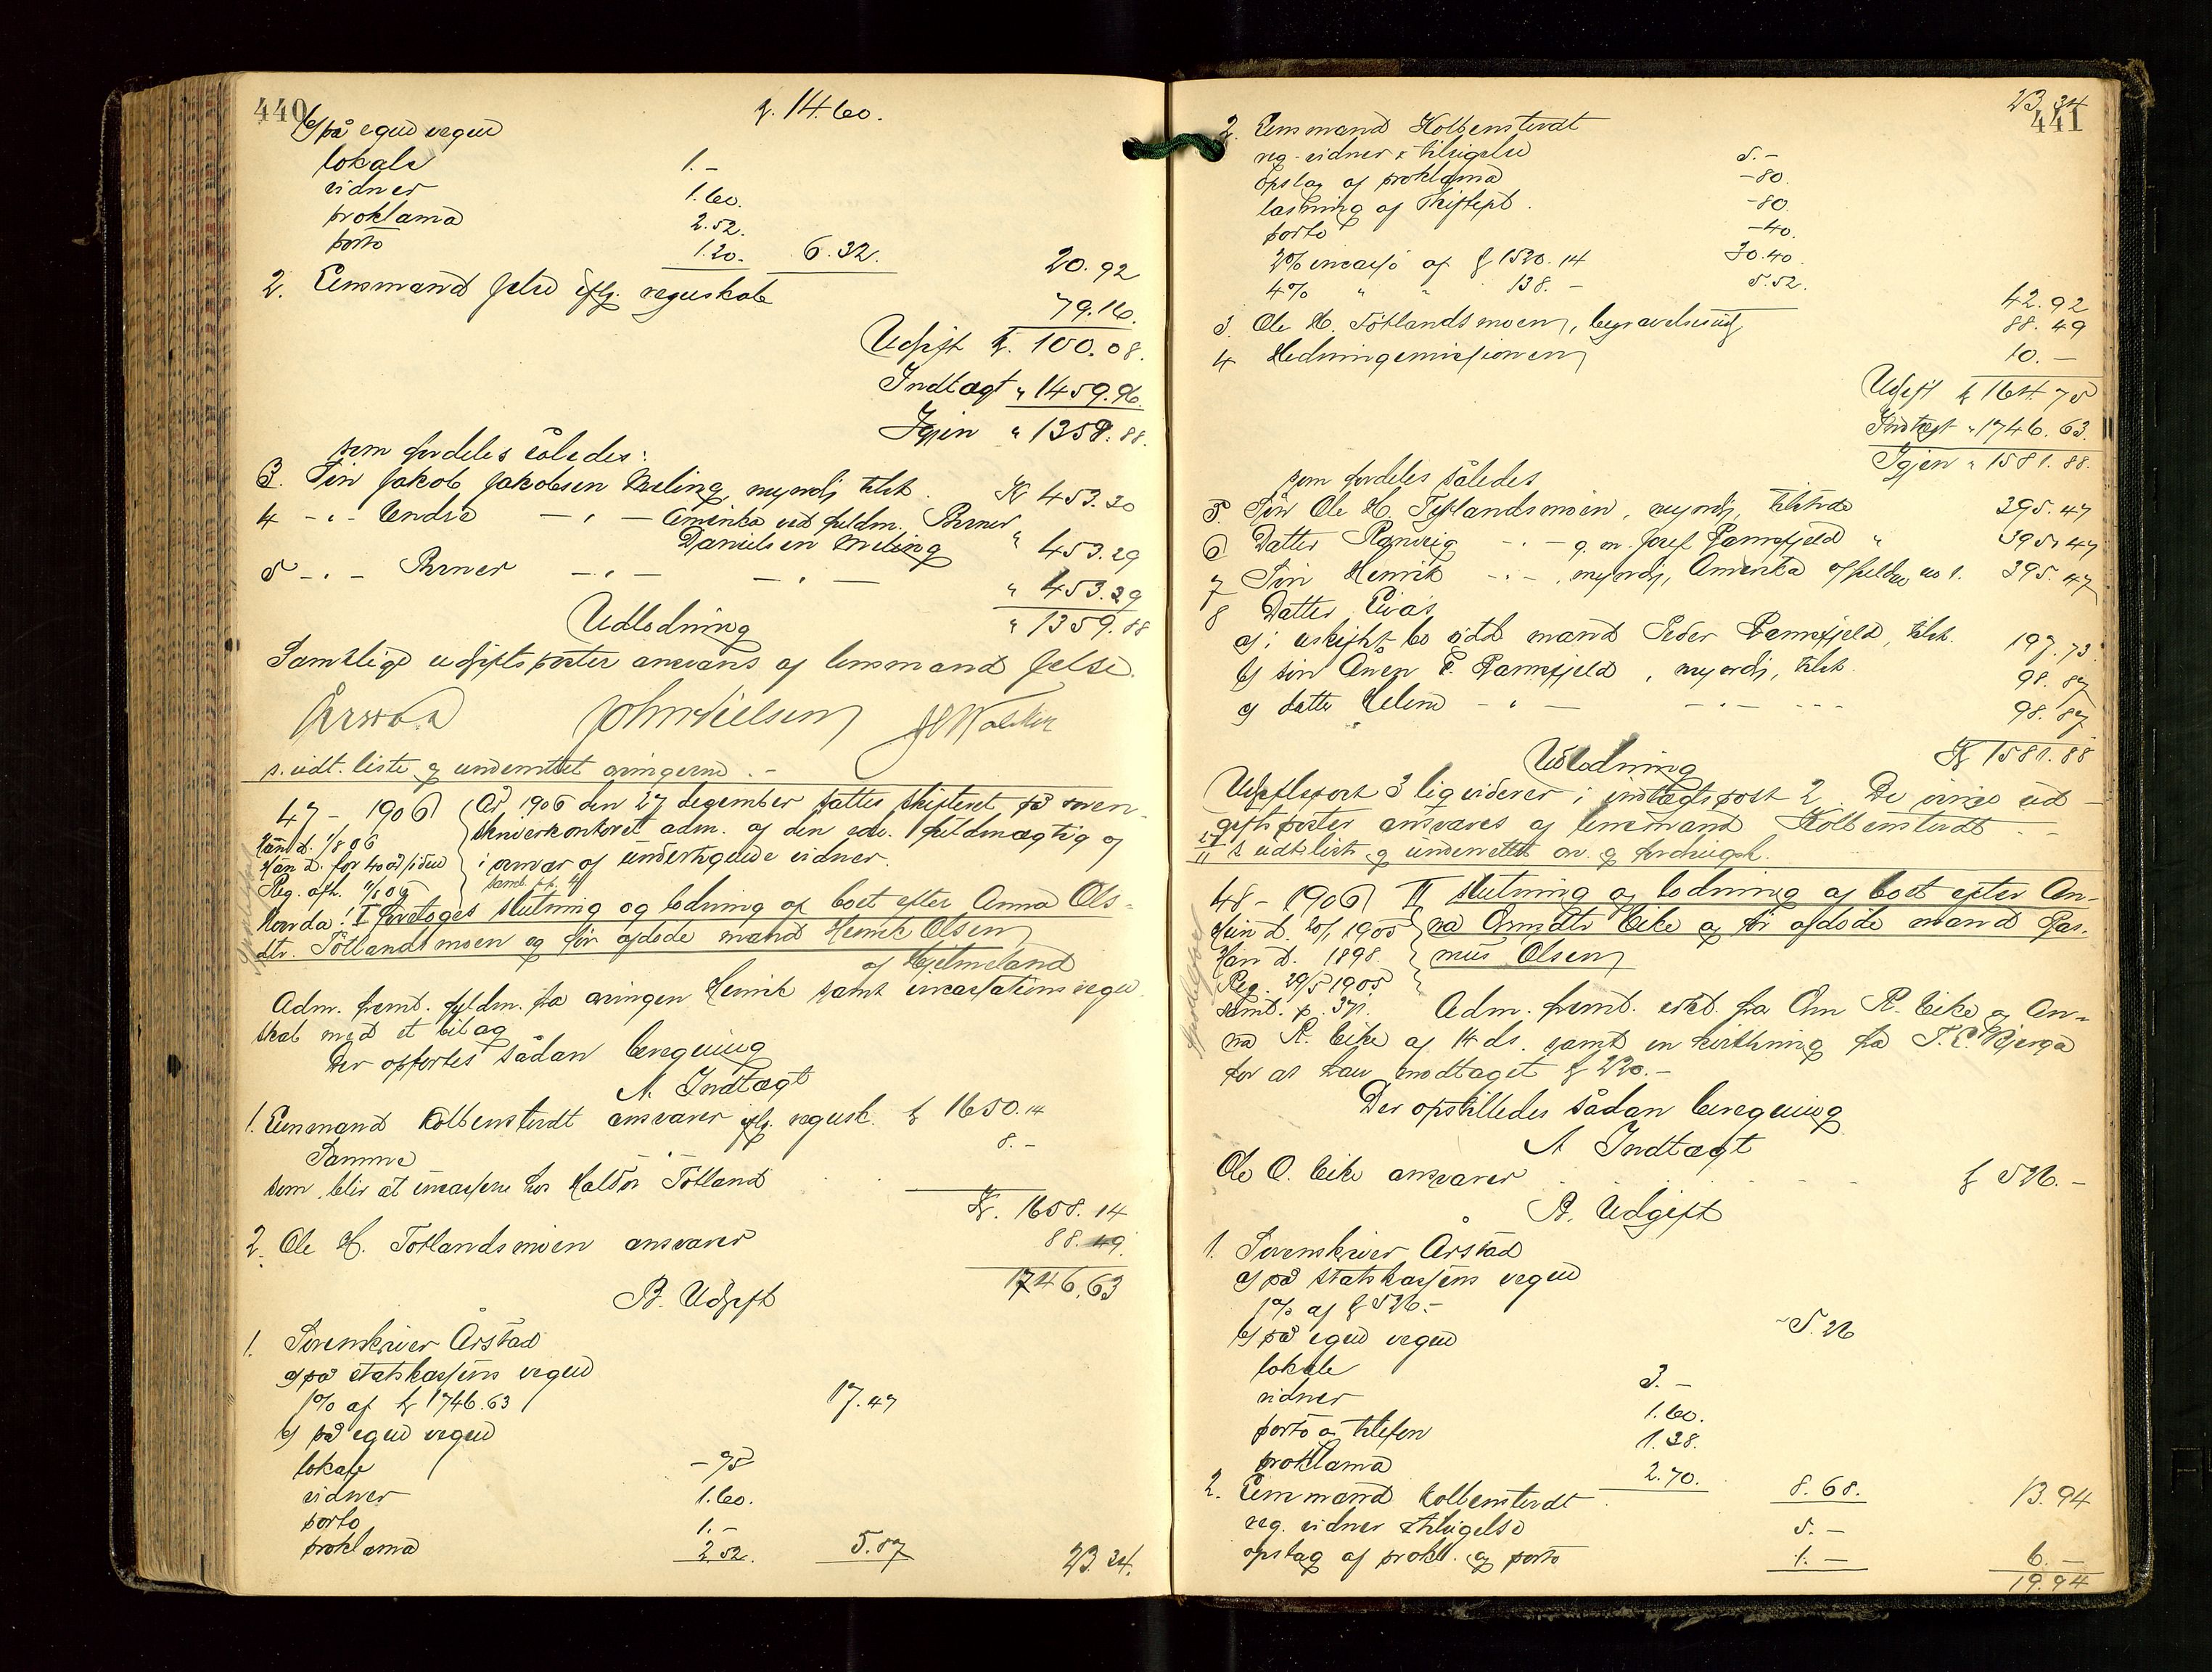 440
k. 14.60.
b) på egne vegne
lokale 1.-
vidner 1.60.
proklama 2.52.
porto 1.20. 6.32. 20.92
2. Lensmand Jelse iflg. regnskab 79.16.
Udgift k. 100.08.
Indtægt " 1459.96.
Igjen " 1359.88.
som fordeles således:
3. Søn Jakob Jakobsen Meling, myndig, tilst. Kr 453.30
4 - " - Endre - " - Amerika ved fuldm. Berner
Danielsen Meling " 453.29
5 - " - Berner - " - - " - " 453.29
" 1359.88
Udlodning
Samtlige udgiftsposter ansvares af lensmand Jelse.
Årstad John Nielsen
s. udt. liste og underrettet arvingerne.-
47 - 1906
År 1906 den 27 december sattes skifteret på soren-
skriverkontoret adm. af den edv. fuldmægtig og
i nærvær af undertegnede vidner.
Reg. afh.
I foretoges slutning og lodning af boet efter Anna Ols-
dtr. Tøtlandsmoen og før afdøde mand Henrik Olsen
af Hjelmeland
Adm. fremd. fuldm. fra arvingen Henrik samt incassationsregn-
skab med et bilag
Der opførtes sådan beregning
A. Indtægt
1. Lensmand Kolbenstvedt ansvarer iflg. regnsk. k 1650.14
Samme 8.-
som blir at incassere hos Haldor Tøtland
Kr. 1658.14
2. Ole H. Tøtlandsmoen ansvarer 88.49.
1746.63
B. Udgift
1. Sorenskriver Årstad
a) på statskassens vegne
1% af k 1746.63 17.47
b) på egne vegne
lokale -.75
vidner 1.60.
porto 1.-
proklama 2.52. 5.87 23.34.
23.34
441
2. Lensmand Kolbenstvedt
reg. vidner & tilsigelse 5.-
opslag af proklama -80.
læsning af skiftepl. -80.
porto -40.
2% incasso af k 1520.14 30.40.
4% " " 138.- 5.52.
42.92
3. Ole H. Tøtlandsmoen, begravelsesudg. 88.49
4 Hedningemissionen 10.-
Udgift k 164.75
Indtægt " 1746.63.
Igjen " 1581.88.
som fordeles således
5. Søn Ole H. Tøtlandsmoen, myndig, tilstede 395.47
6 Datter Ragnvig - " - g. m. Josef Ramsfjeld " 395.47
7 Søn Henrik - " -, myndig, Amerika 395.47
8 Datter Eivas
a) i uskiftet bo sidd. mand Peder Ramsfjeld, tilst. 197.73.
b) søn Aven P. Ramsfjeld, myndig, tilst. 98.87
c) datter Helene - " - - " - 98.87
Kr 1581.88
Udlodning
Udgiftspost 3 ligviderer i indtægtspost 2. De øvrige ud-
giftsposter ansvares af lensmand Kolbenstvedt.-
s udt. liste og underrettet arv. og fordringsh.
48 - 1906 II slutning og lodning af boet efter An-
na Omsdtr Eike og før afdøde mand Ras-
mus Olsen
Hun d. 20/1 1905
Han d. 1898.
Reg. 29/5 1905
samt. p. 371.
Adm. fremd. erkl. fra Om R. Eike og An-
na R. Eike af 14 ds. samt en kvittering fra T. E. Bjerga
for at have modtaget k 220.-
Der opstilledes sådan beregning
A Indtægt
Ole O. Eike ansvarer k 526.-
B. Udgift
1. Sorenskriver Årstad
a) på statskassens vegne
1% af k 526.- 5.26
b) på egne vegne
lokale 3.-
vidner 1.60.
porto og telefon 1.38.
proklama 2.70. 8.68. 13.94
2. Lensmand Kolbenstvedt
reg. vidner & tilsigelse 5.-
opslag af prokl. og porto 1.- 6.-
19.94